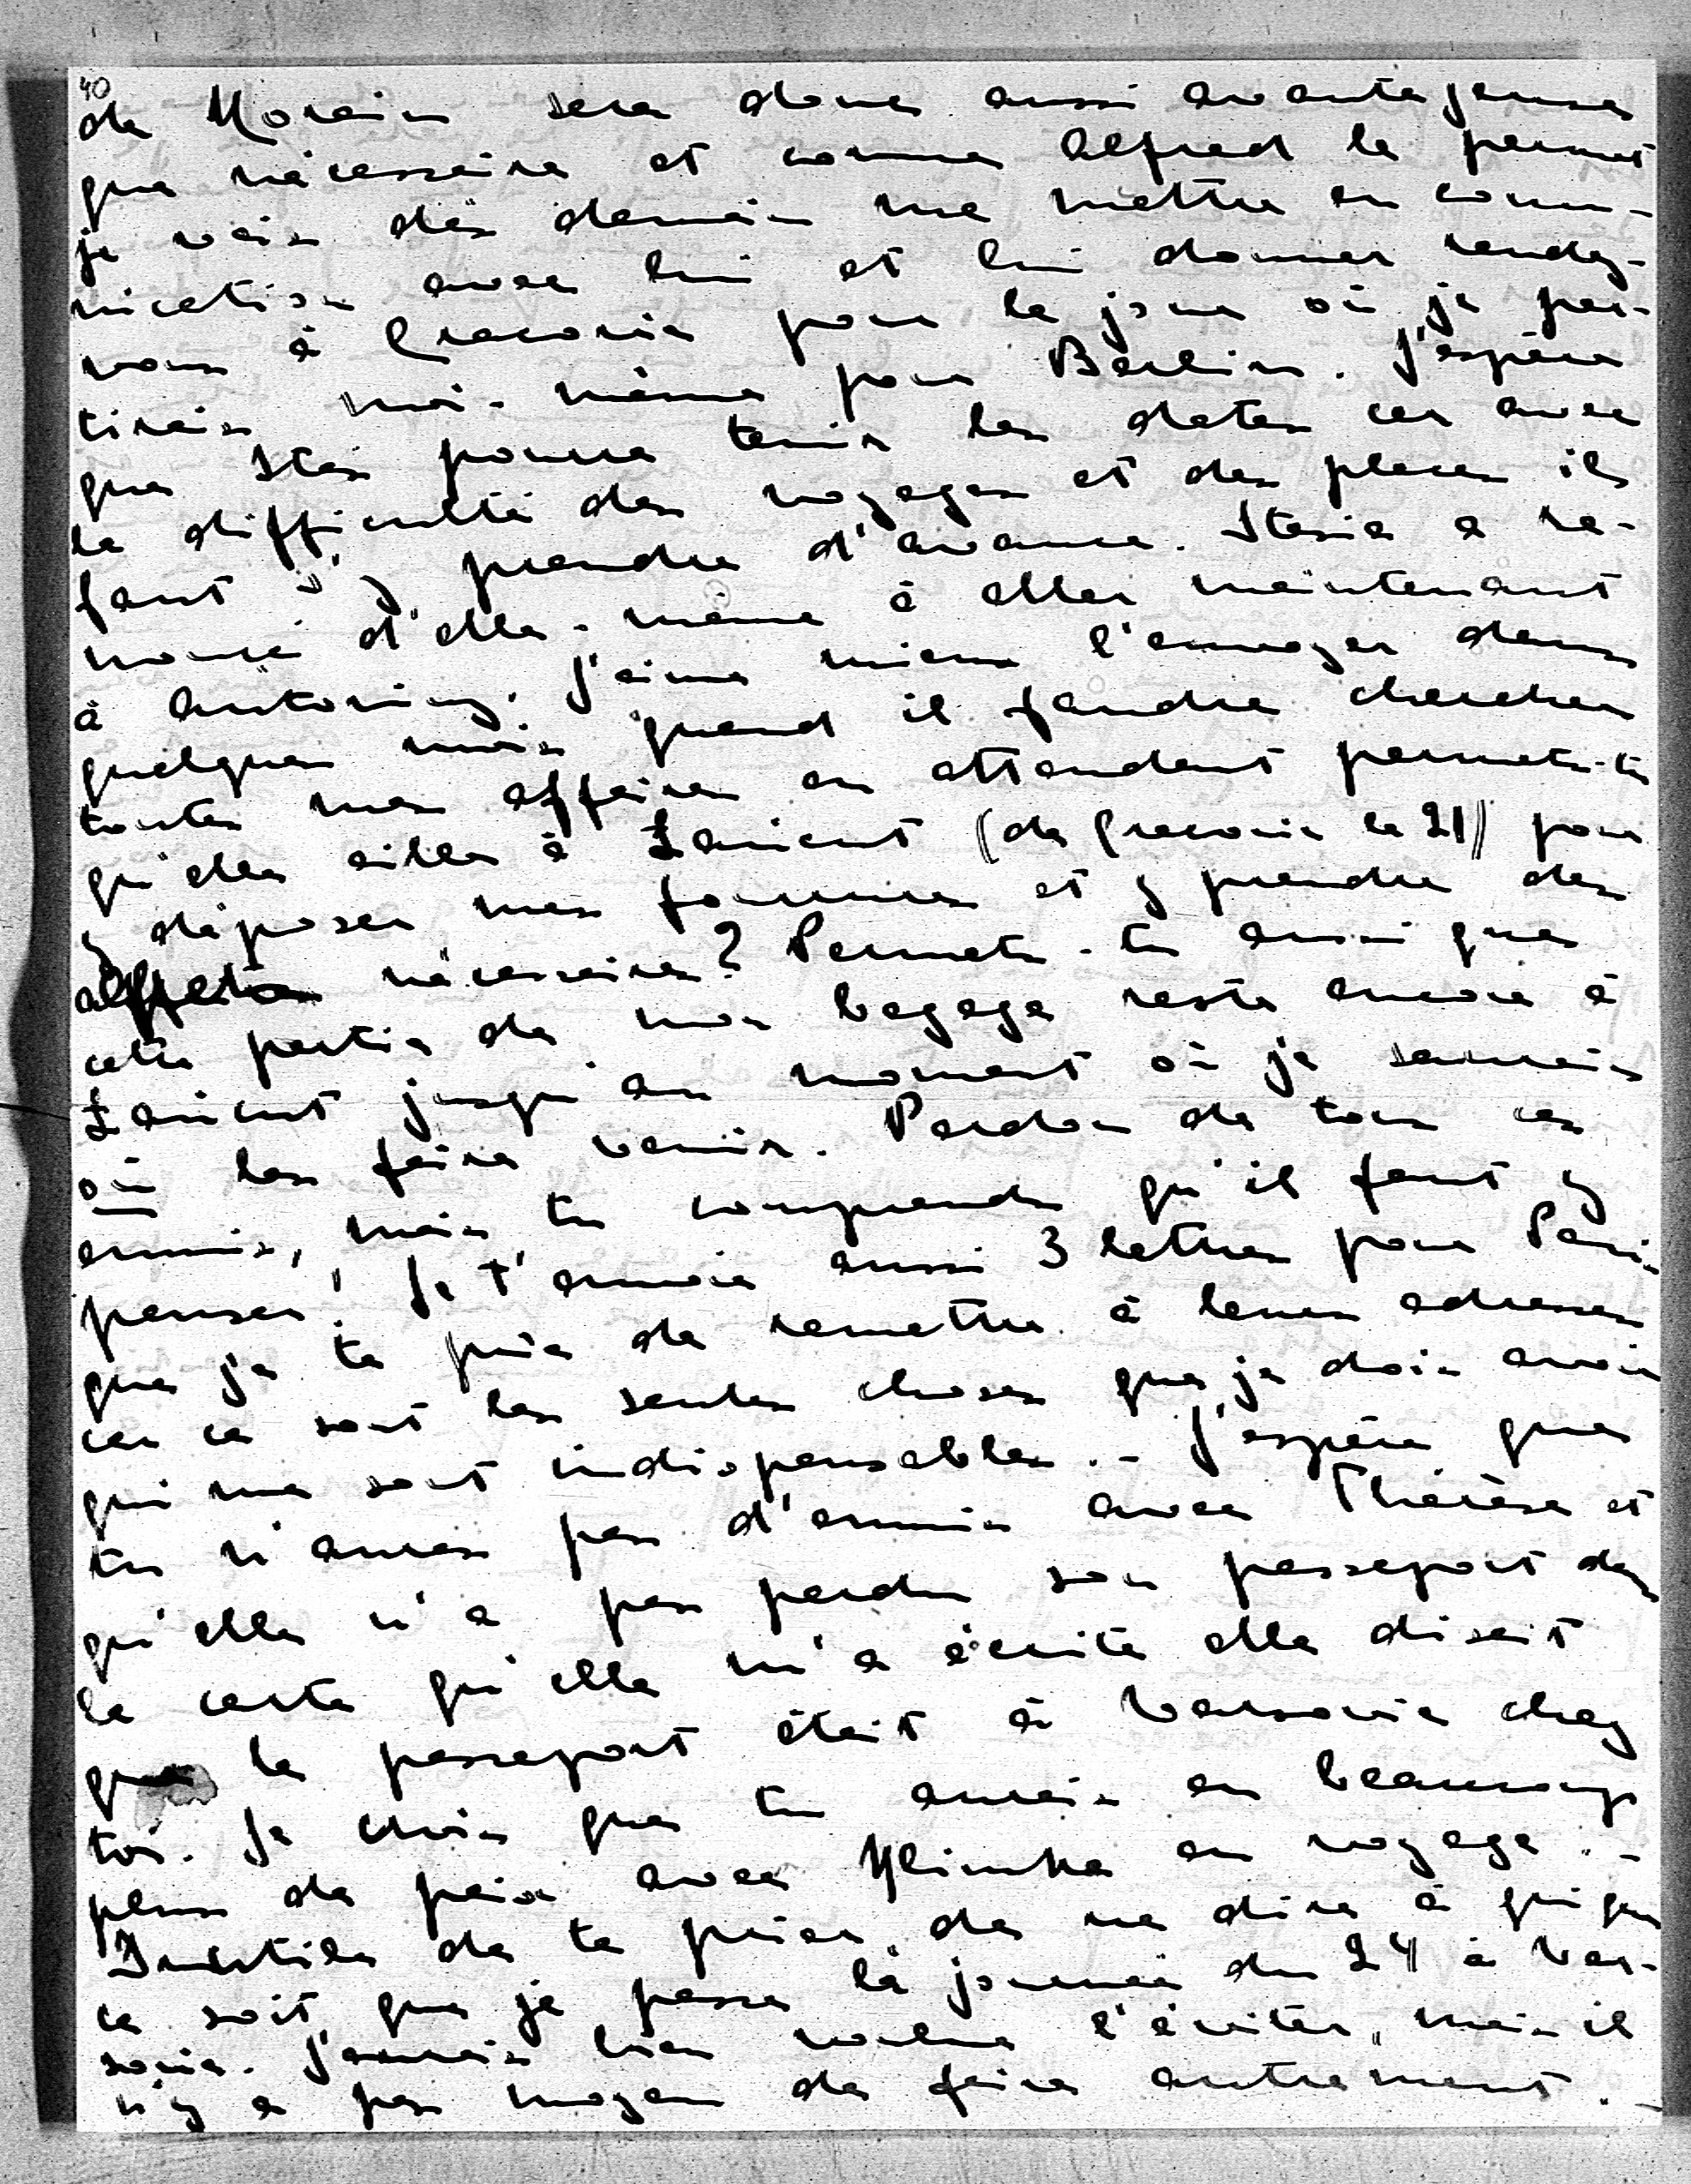 40
de Morain sera donc aussi avantageuse
que nécessaire et comme Alfred le permet
je vais dès demain me mettre en commu-
nication avec lui et lui donner rendez-
vous à Cracovie pour le jour où je par-
tirais moi-même pour Berlin. J'espère
que Stas pourra tenir les dates car avec
la difficulté des voyages et des places il
faut s'y prendre d'avance. Stasia a re-
noncé d'elle-même à aller maintenant
à Antoniny. J'aime mieux l'envoyer dans
quelques mois quand il faudra chercher
toutes mes affaires en attendant permets-tu
qu'elle aille à Łańcut (de Cracovie le 21) pour
y déposer mes fourrures et y prendre des
effets nécessaires? Permets-tu aussi que
cette partie de mon bagage reste encore à
Łańcut jusqu'au moment où je saurais
où les faire venir. Pardon de tous ces
ennuis, mais tu comprends qu'il faut y
penser! Je t'envoie aussi 3 lettres pour Paris
que je te prie de remettre à leurs adresses
car ce sont les seules choses que je dois avoir
qui me sont indispensables. - J'espère que
tu n'auras pas d'ennuis avec Thérèse et
qu'elle n'a pas perdu son passeport ds
la carte qu'elle m'a écrite elle disait
que le passeport était à Varsovie chez
toi. Je crois que tu aurais eu beaucoup
plus de paix avec Klimka en voyage. -
Inutile de te prier de ne dire à qui que
ce soit que je passe la journée du 24 à Var-
sovie. J'aurais bien voulu l'éviter, mais il
n'y a pas moyen de faire autrement. -